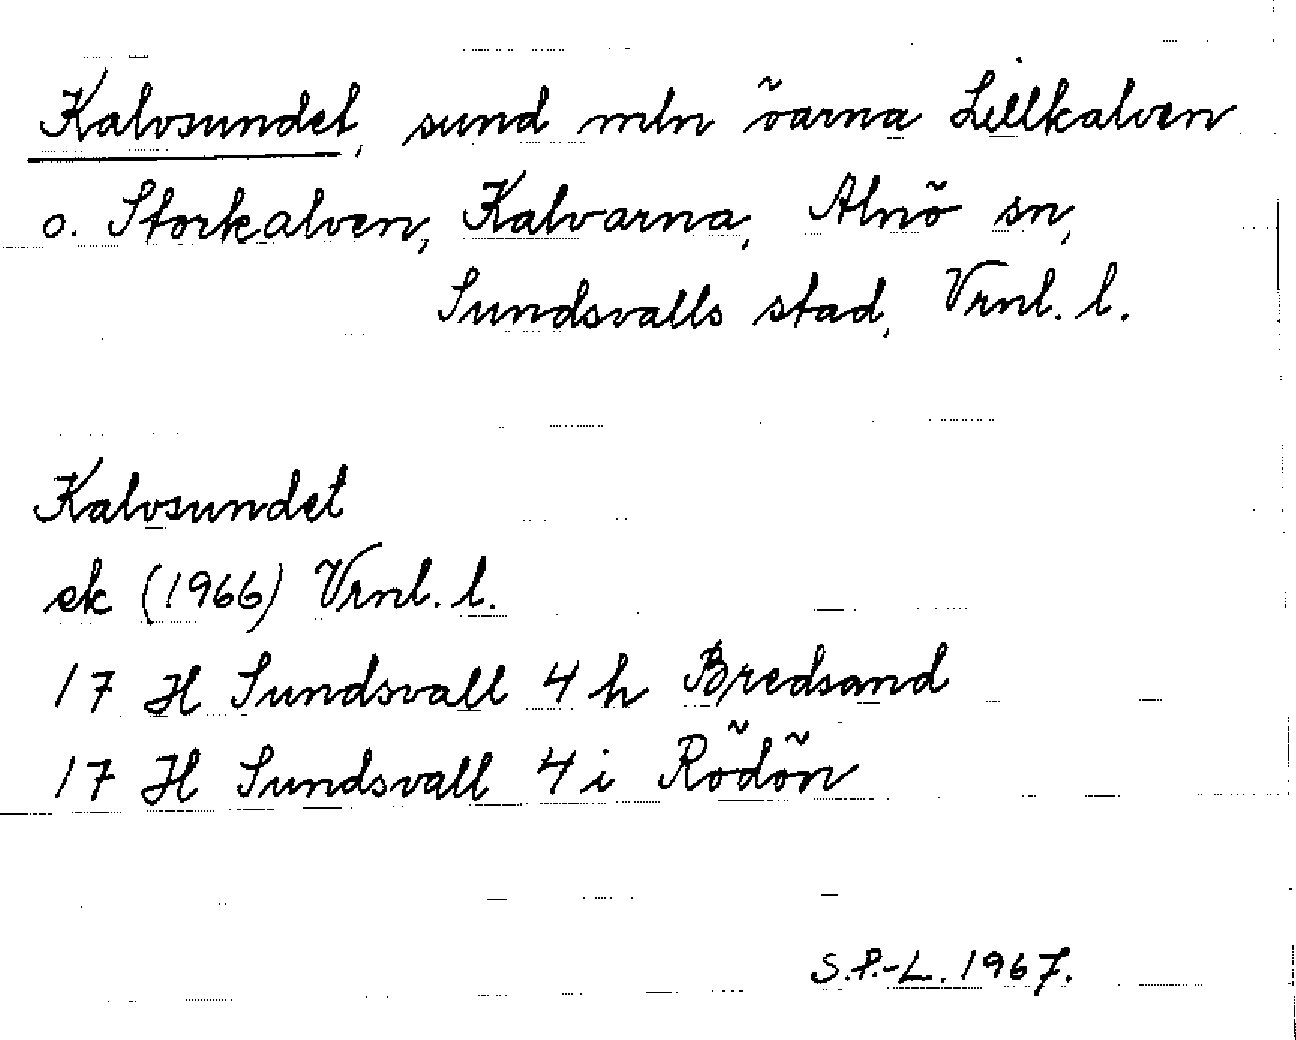 Kalvsundet, sund mln öarna Lillkalven
o. Storkalven, Kalvarna, Alnö sn,
Sundsvalls stad, Vrnl. l.
Kalvsundet
ek (1966) Vrnl. l.
17 H Sundsvall 4 h Bredsand
17 H Sundsvall 4 i Rödön
S.P.-L. 1967.